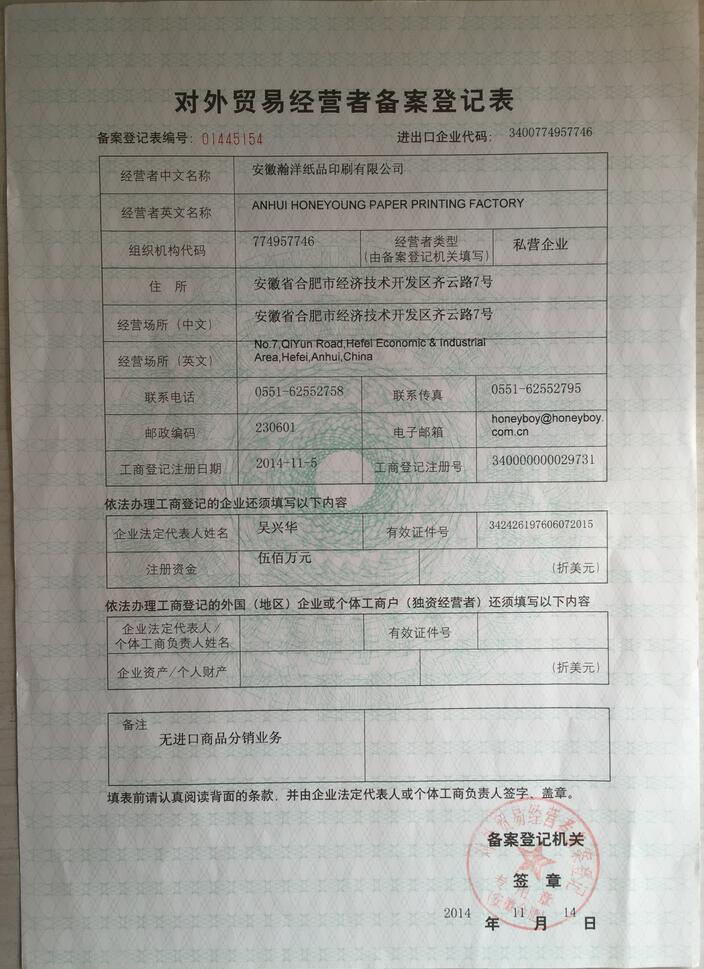 对外贸易经营者备案登记表
备案登记表编号: 01445154 进出口企业代码: 3400774957746
经营者中文名称 安徽瀚洋纸品印刷有限公司
经营者英文名称 ANHUI HONEYOUNG PAPER PRINTING FACTORY
组织机构代码 774957746 经营者类型 (由备案登记机关填写) 私营企业
住 所 安徽省合肥市经济技术开发区齐云路7号
经营场所(中文) 安徽省合肥市经济技术开发区齐云路7号
经营场所(英文) No.7,QiYun Road,Hefei Economic & Industrial
Area,Hefei,Anhui,China
联系电话 0551-62552758 联系传真 0551-62552795
邮政编码 230601 电子邮箱 honeyboy@honeyboy.
com.cn
工商登记注册日期 2014-11-5 工商登记注册号 340000000029731
依法办理工商登记的企业还须填写以下内容
企业法定代表人姓名 吴兴华 有效证件号 342426197606072015
注册资金 伍佰万元 (折美元)
依法办理工商登记的外国(地区)企业或个体工商户(独资经营者)还须填写以下内容
企业法定代表人/
个体工商负责人姓名 有效证件号
企业资产/个人财产 (折美元)
备注
无进口商品分销业务
填表前请认真阅读背面的条款,并由企业法定代表人或个体工商负责人签字、盖章。
备案登记机关
签 章
2014 年 11 月 14 日